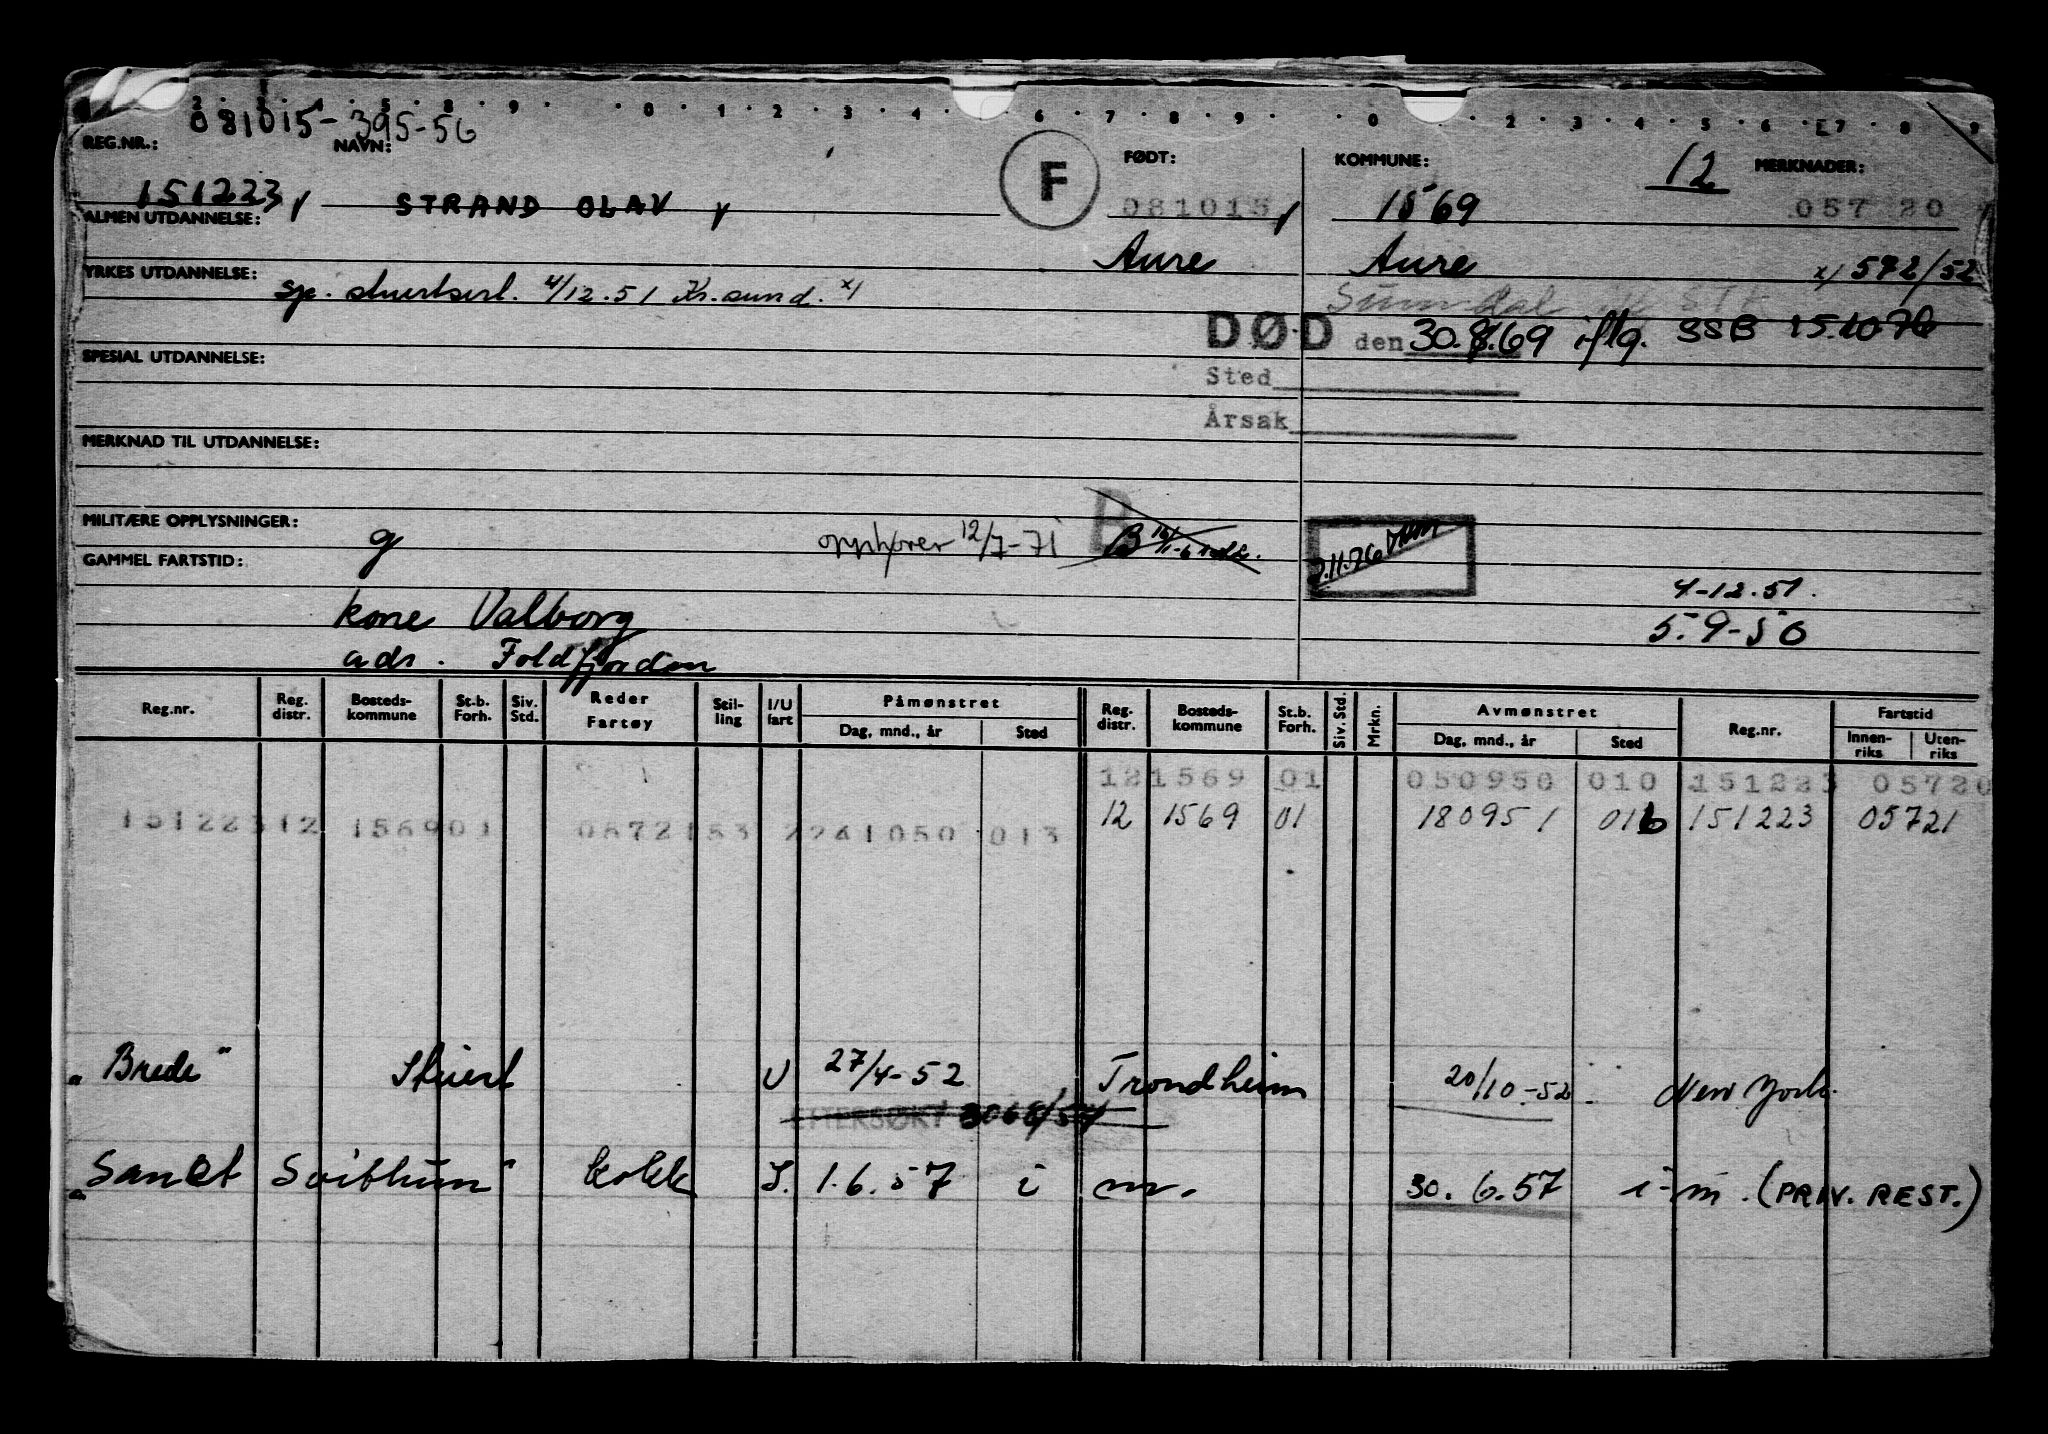 2 · 3 · 4 · 5 · 8 · 9 · · 0 · 1 · 2 · 3 · 4 · · 6 · 7 · 8 · 9 · · 0 · · 2 · 3 · 4 · 5 · 6 · 7 · 8 · 9
081015-395-56
REG.NR.: NAVN: FØDT: KOMMUNE: 12 MERKNADER:
151223 STRAND OLAV F 081015 1569 057 20
ALMEN UTDANNELSE:
Aure Aure x) 572/52
YRKES UTDANNELSE: sp. stuertsert. 4/12.51 Kr.sund. x)
Sunndal
DØD den 30.8.69 iflg. SSB 15.10.70
SPESIAL UTDANNELSE:
Sted
Årsak
MERKNAD TIL UTDANNELSE:
B
MILITÆRE OPPLYSNINGER: g opphører 12/7-71 B
2.11.76
GAMMEL FARTSTID:
4-12.51.
kone Valborg 5.9-50
adr. Foldfjorden
Reg.nr. Reg. distr. Bosteds-kommune St.b. Forh. Siv. Std. Reder Fartøy Stil-ling I/U fart Påmønstret Dag, mnd., år Sted Reg. distr. Bosteds-kommune St.b. Forh. Siv. Std. Mrkn. Avmønstret Dag, mnd., år Sted Reg.nr. Fartstid Innen-riks Uten-riks
121569 01 050950 010 151223 05720
151223 12 156901 0572153 2241050 013 12 1569 01 180951 016 151223 05721
"Brede" Stuert U 27/4-52 Trondheim 20/10-52 New York.
EFTERSØKT 3068/54
"Sanct Svithun" kokk I. 1.6.57 i m. 30.6.57 i-m. (PRIV. REST.)